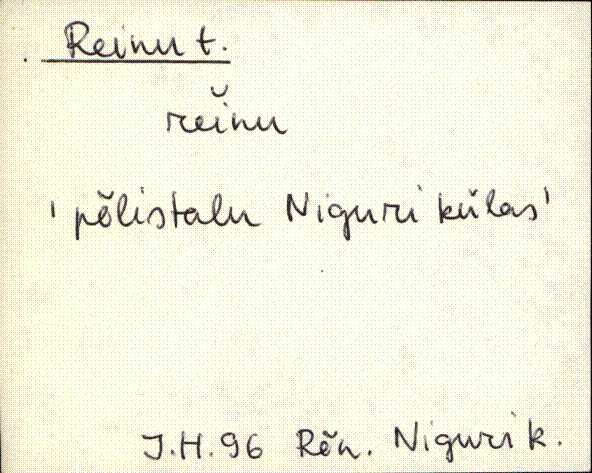 Reinu t.
rei̮nu
'põlistalu Niguri külas'
J.H.96 Rõu. Niguri k.